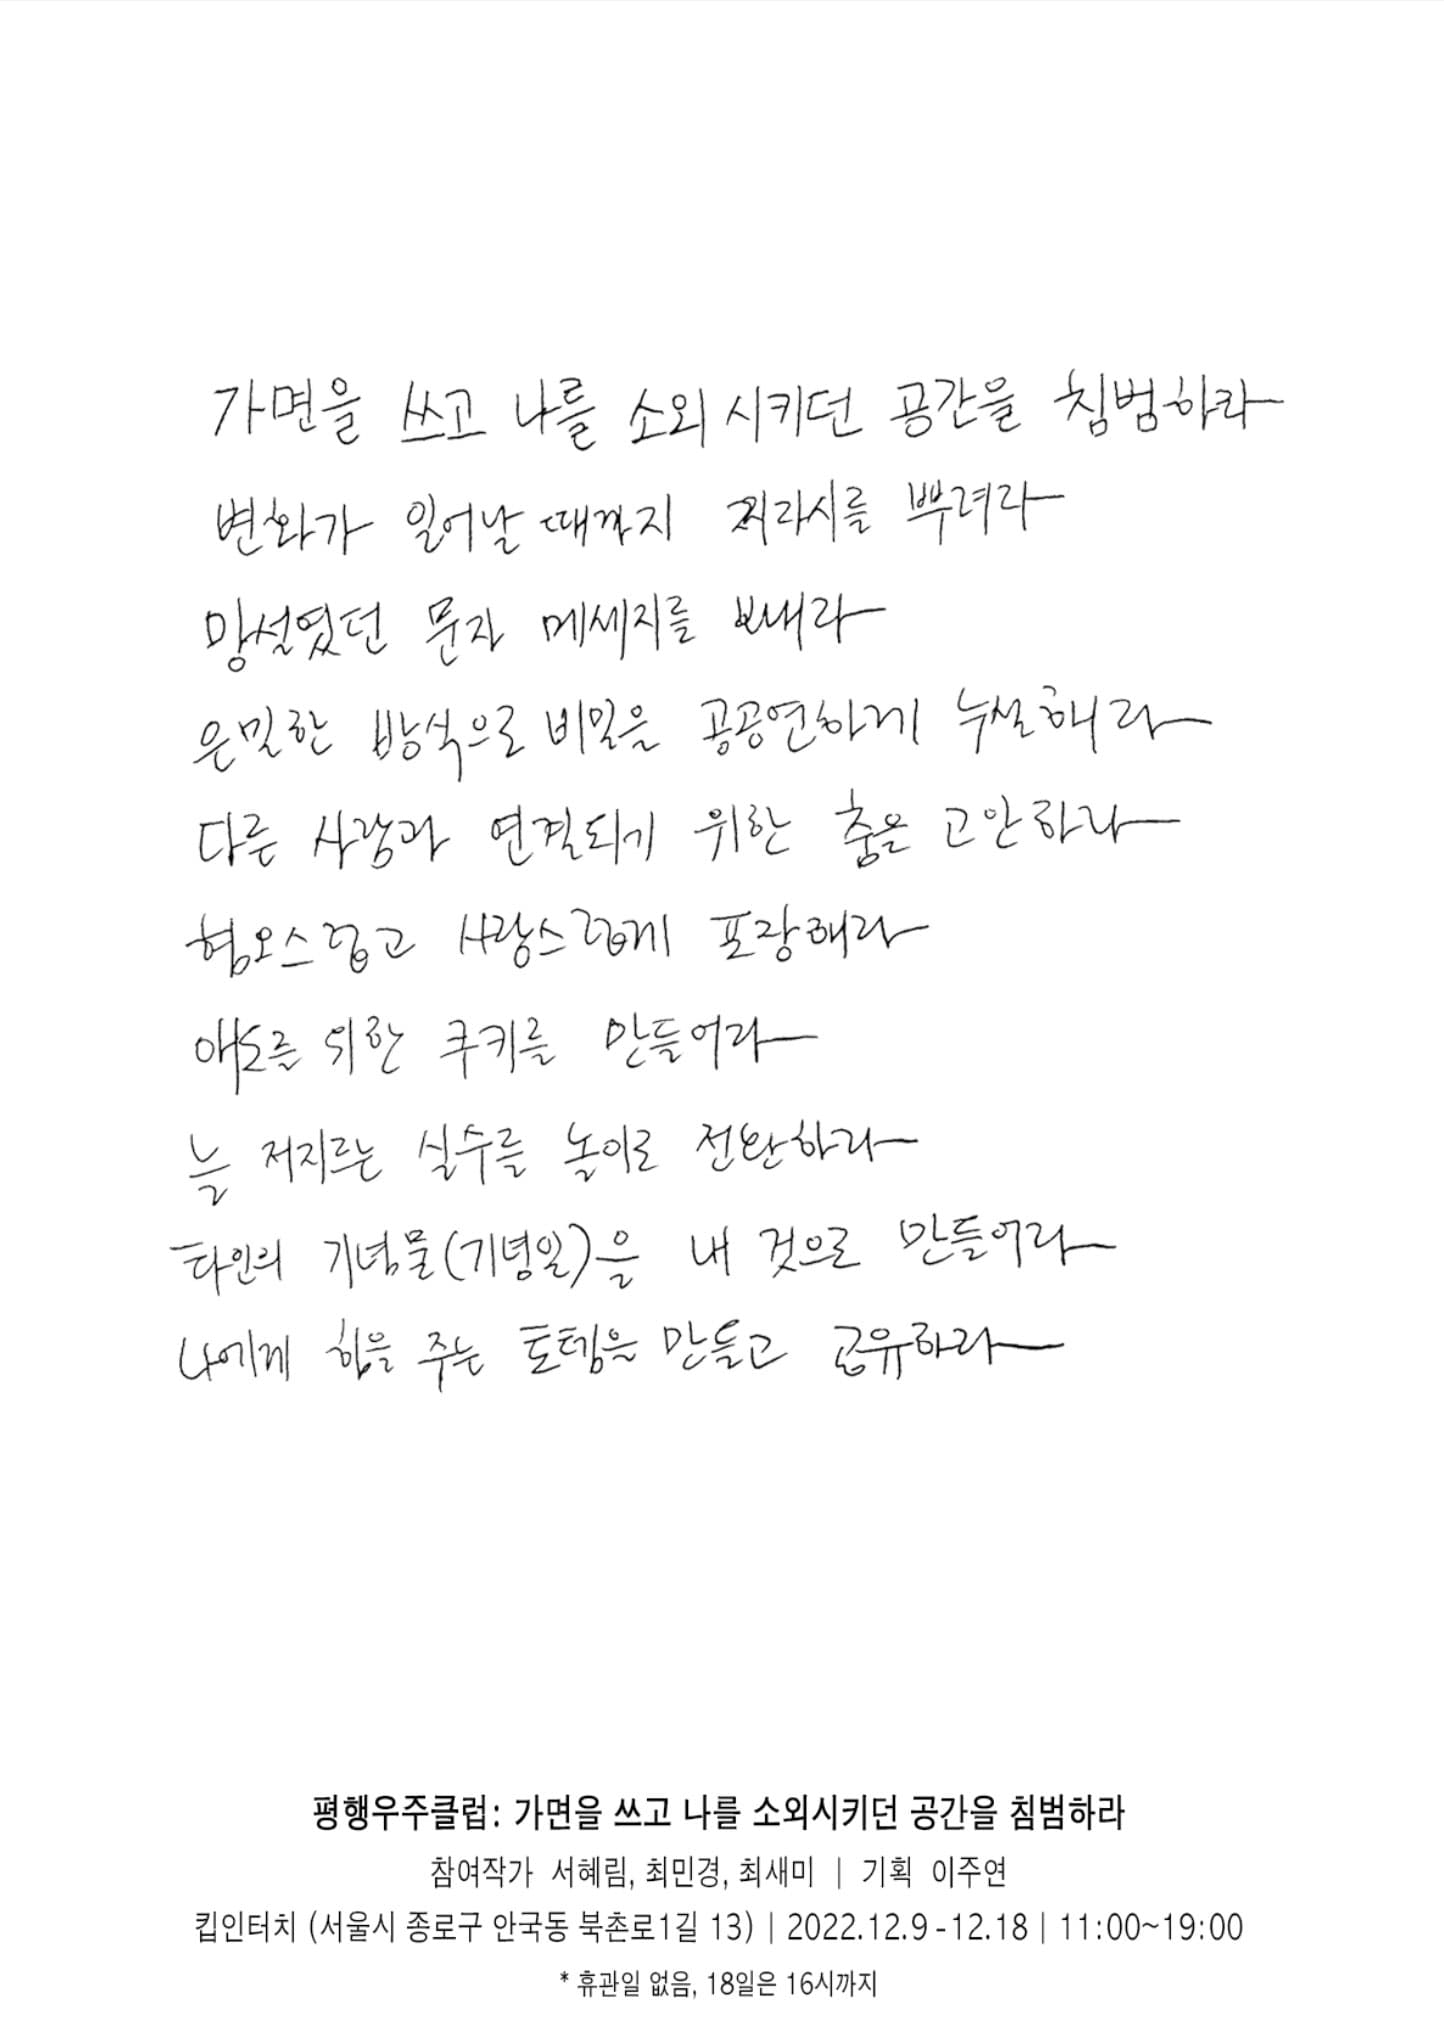 가면을 쓰고 나를 소외시키던 공간을 침범하라
변화가 일어날 때까지 찌라시를 뿌려라
망설였던 문자 메세지를 보내라
은밀한 방식으로 비밀을 공공연하게 누설해라
다른 사람과 연결되기 위한 춤을 고안하라
혐오스럽고 사랑스럽게 포장해라
애도를 위한 쿠키를 만들어라
늘 저지르는 실수를 놀이로 전환하라
타인의 기념물(기념일)을 내 것으로 만들어라
나에게 힘을 주는 토템을 만들고 공유하라
평행우주클럽: 가면을 쓰고 나를 소외시키던 공간을 침범하라
참여작가 서혜림, 최민경, 최새미 | 기획 이주연
킵인터치 (서울시 종로구 안국동 북촌로1길 13) | 2022.12.9 - 12.18 | 11:00~19:00
* 휴관일 없음, 18일은 16시까지